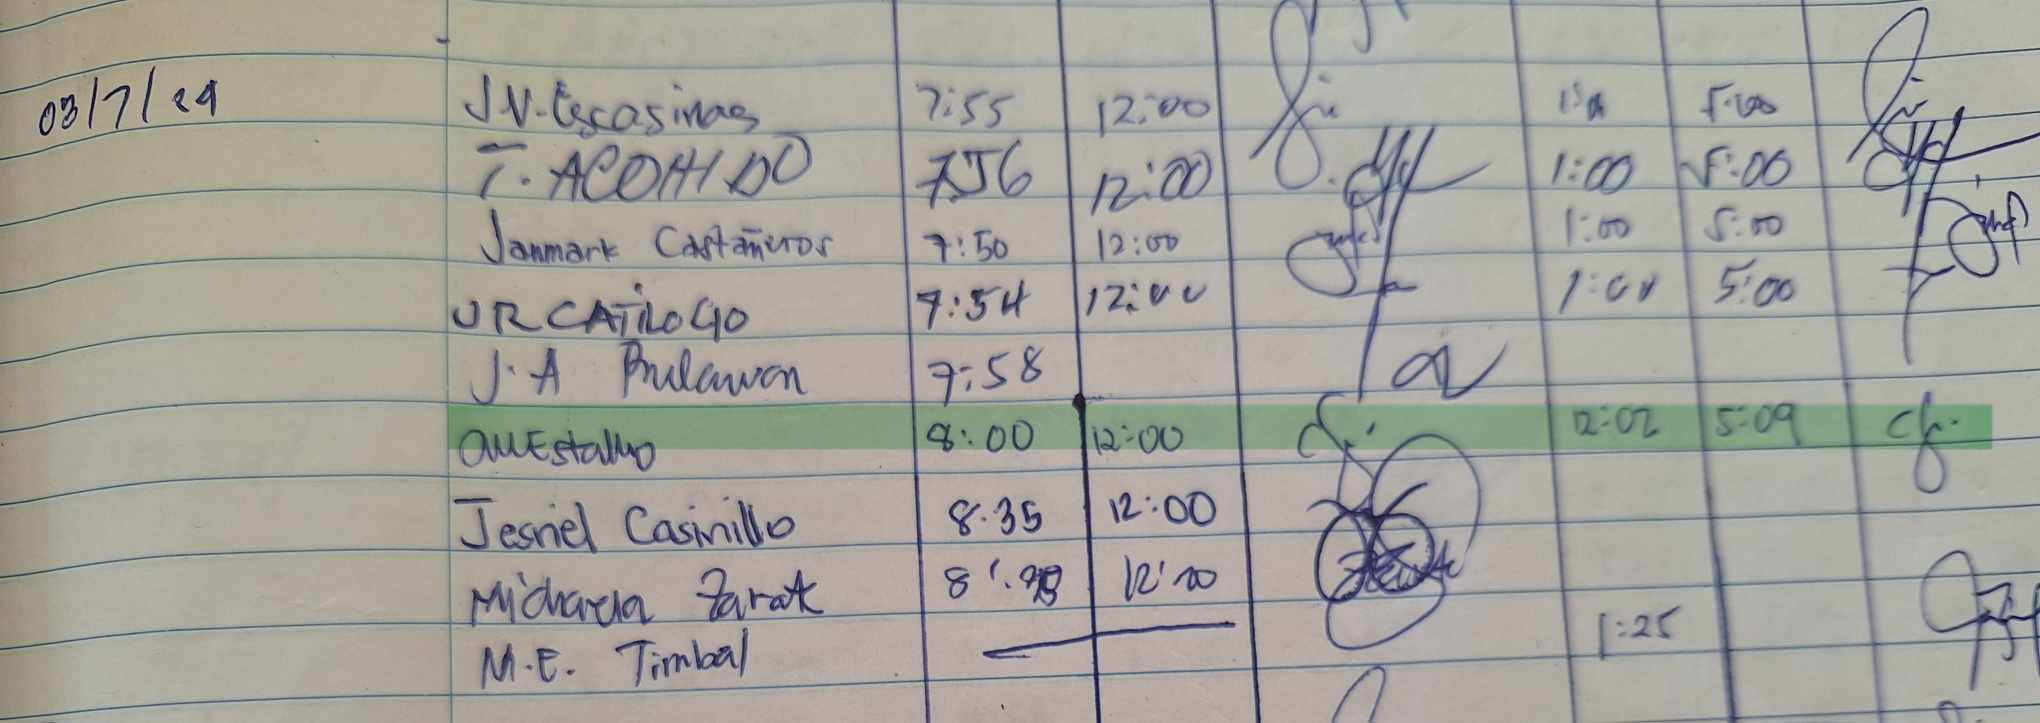 03/7/24 J.V. Escasinas 7:55 12:00 5:00
T. ACOHIDO 7:56 12:00 1:00 5:00
Janmark Castañeros 7:50 12:00 1:00 5:00
JR CATILOGO 7:54 12:00 1:00 5:00
J.A Bulawan 7:58
8:00 12:00 12:02 5:09
Jesriel Casinillo 8:35 12:00
Zarate 12:00
1:25
M.E. Timbal